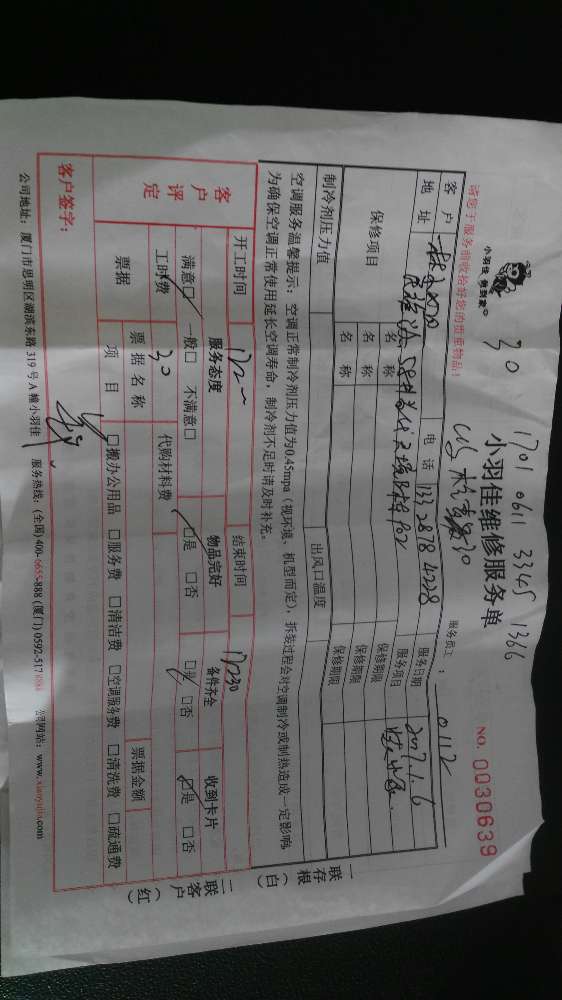 30
1701 0611 3345 1366
小羽佳 包到家
小羽佳维修服务单
NO. 0030639
请您于服务前收拾好您的贵重物品！
服务员工： 0112
客户
电话 133 2878 4228
服务日期 2017.1.6
地址
服务项目
保修项目
名称
保修期限
名称
保修期限
名称
保修期限
制冷剂压力值
出风口温度
空调服务温馨提示：空调正常制冷剂压力值为0.45mpa（视环境、机型而定），拆装过程会对空调制冷或制热造成一定影响，
为确保空调正常使用延长空调寿命，制冷剂不足时请及时补充。
一联存根（白）
二联客户（红）
开工时间
结束时间
客户评定
服务态度
物品完好
备件齐全
收到卡片
满意□ 一般□ 不满意□
□是 □否
□是 □否
□是 □否
工时费 30
代购材料费
票据
票据名称
票据金额
项目
□搬办公用品 □服务费 □清洁费 □空调服务费 □清洗费 □疏通费
客户签字：
公司地址：厦门市思明区湖滨东路319号A幢小羽佳 服务热线：(全国)400-6655-888 (厦门) 0592-517 公司网站：www.xiaoyujia.com